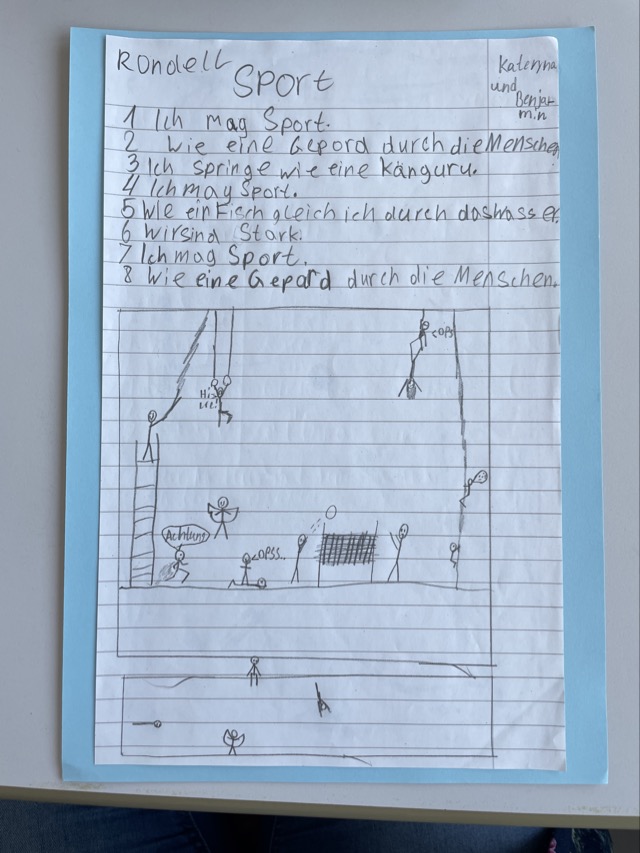 Rondell
Sport
Katerina
und
Benja-
min
1 Ich mag Sport.
2 Wie eine Gepord durch die Menschen
3 Ich springe wie eine Känguru.
4 Ich mag Sport.
5 Wie ein Fisch gleich ich durch daswasser.
6 wirsind Stark.
7 Ich mag Sport.
8 Wie eine Gepard durch die Menschen.
<OPS
Achtung
<OPSS..